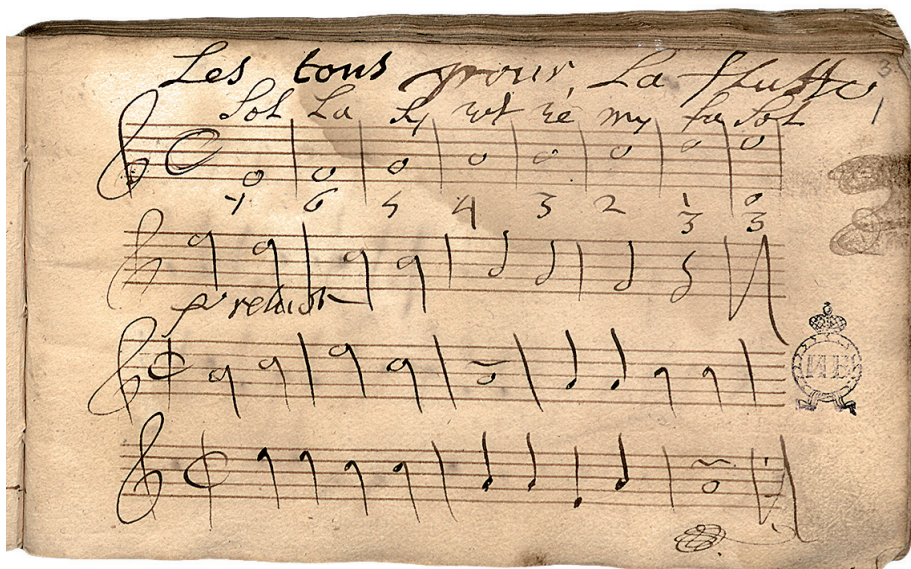 Les tons pour La fluste
Sol La Sy ut ré my fa Sol
7 6 5 4 3 2 1/3 0/3
prelude